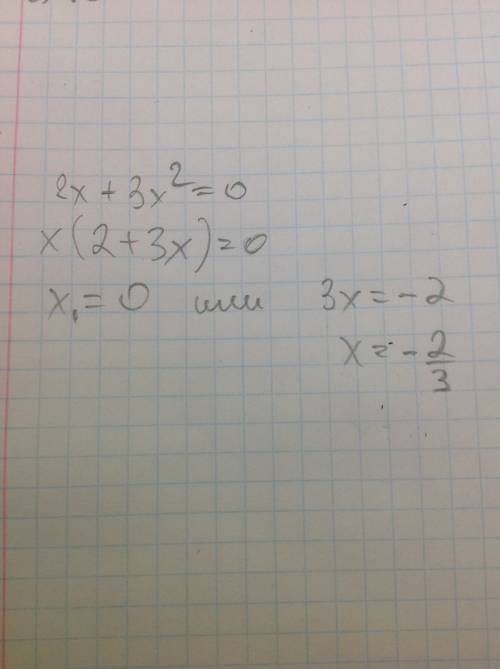 2x + 3x² = 0
x(2 + 3x) = 0
x₁ = 0 или 3x = -2
x = -2/3